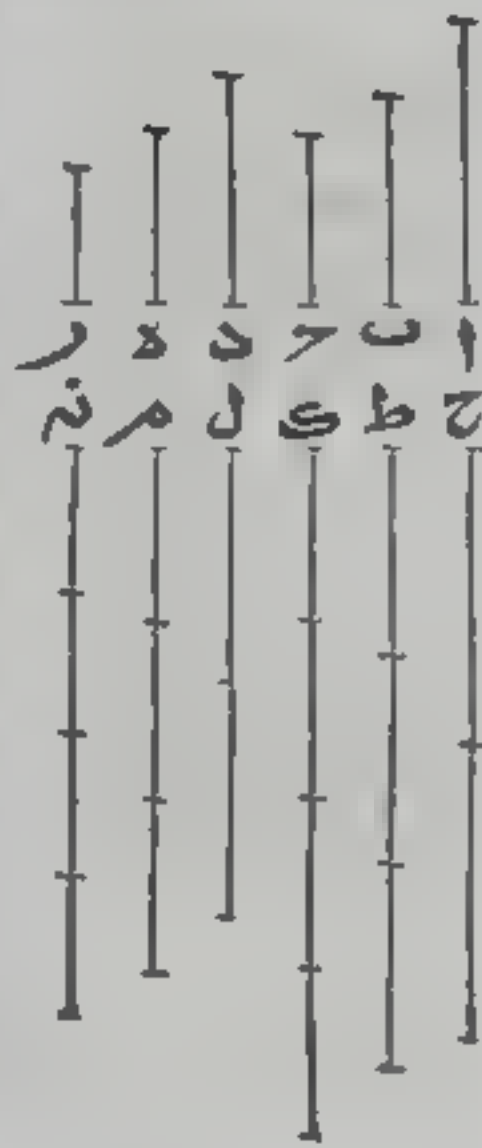 ا ب ح د ه ر
ح ط ى ل م ن